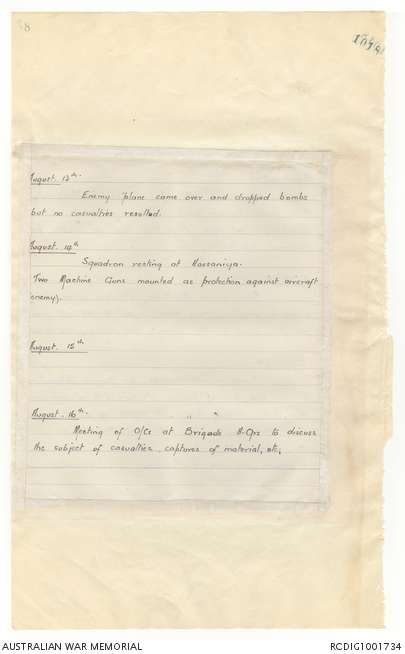 8
August. 13th.
Enemy 'plane came over and dropped bombs
but no casualties resulted.
August. 14th
Squadron resting at Hassaniya.
Two Machine Guns mounted as protection against aircraft
(enemy).
August. 15th
August. 16th. " "
Meeting of O/Cs at Brigade H.Qrs to discuss
the subject of casualties, captures of material, etc,
AUSTRALIAN WAR MEMORIAL
RCDIG1001734